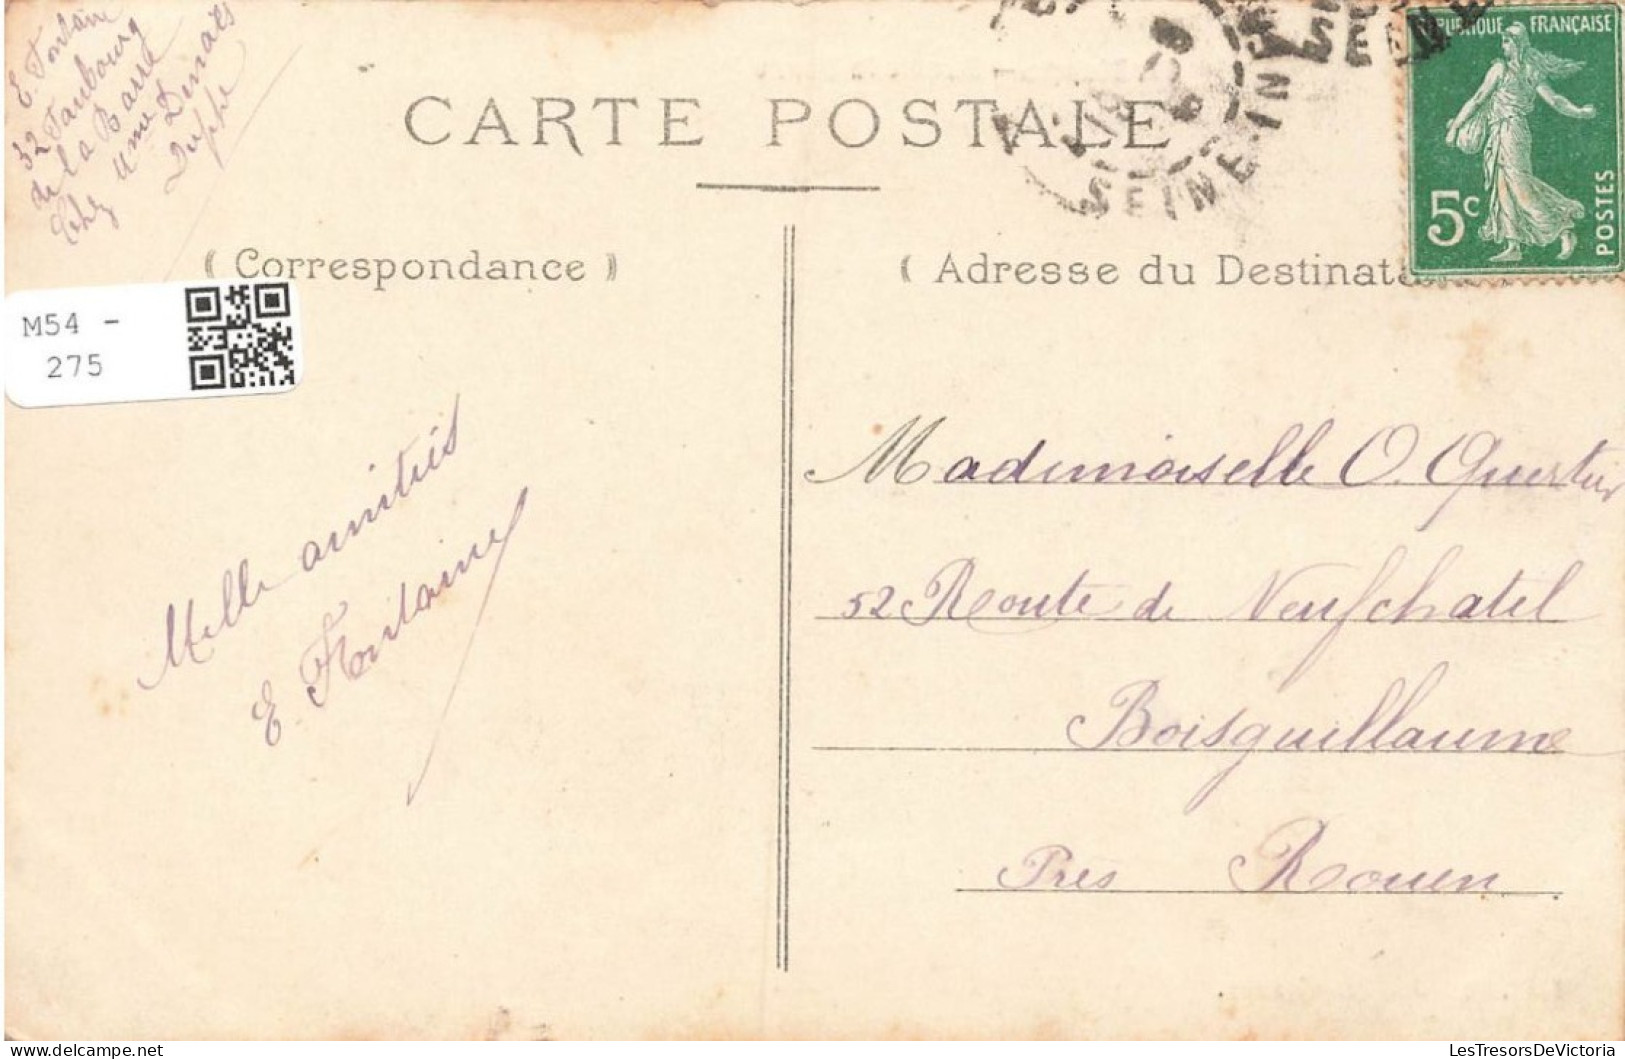 E. Fontaine
32 Faubourg
de la Barre
Chez Mme
Dieppe
CARTE POSTALE
SEINE-IN
RÉPUBLIQUE FRANÇAISE
5c
POSTES
( Correspondance )
( Adresse du Destinata
M54 -
275
Mille amitiés
E. Fontaine
Mademoiselle O. Quertier
52 Route de Neufchatel
Boisguillaume
Près Rouen
LesTresorsDeVictoria